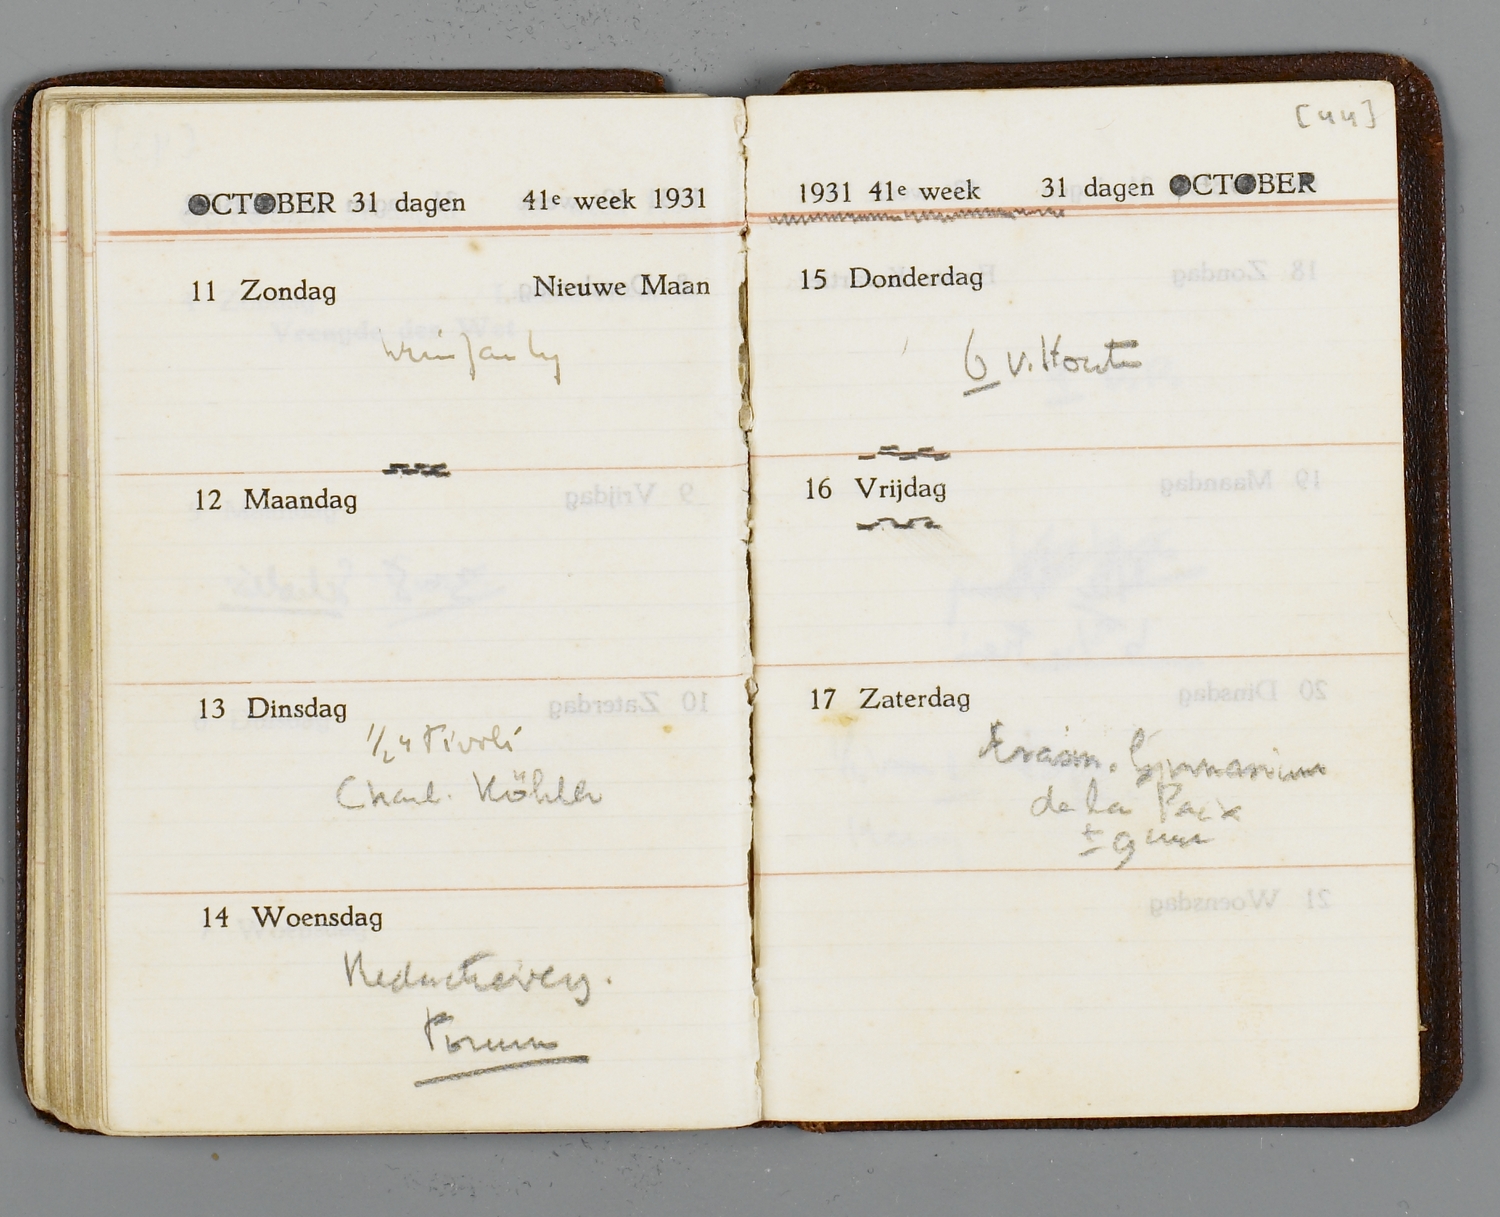 OCTOBER 31 dagen 41e week 1931
11 Zondag Nieuwe Maan
12 Maandag
13 Dinsdag
1/2 4 Tivoli
Charl. Köhler
14 Woensdag
Redactieverg.
Forum
[44]
1931 41e week 31 dagen OCTOBER
15 Donderdag
6 v. Hout
16 Vrijdag
17 Zaterdag
Erasm. Gymnasium
de la Paix
± 9 uur